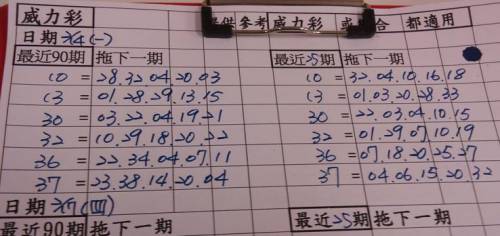 威力彩 提供參考 威力彩 或 合 都適用
日期 2/4 (一)
最近90期 拖下一期 最近25期 拖下一期
10 = 28.32.04.20.03 10 = 32.04.10.16.18
13 = 01.28.29.13.15 13 = 01.03.20.28.33
30 = 03.22.04.19.21 30 = 22.03.04.10.15
32 = 10.29.18.20.22 32 = 01.29.07.10.19
36 = 22.34.04.07.11 36 = 07.18.20.25.27
37 = 23.38.14.20.04 37 = 04.06.15.20.32
日期 (四)
最近90期 拖下一期 最近25期 拖下一期